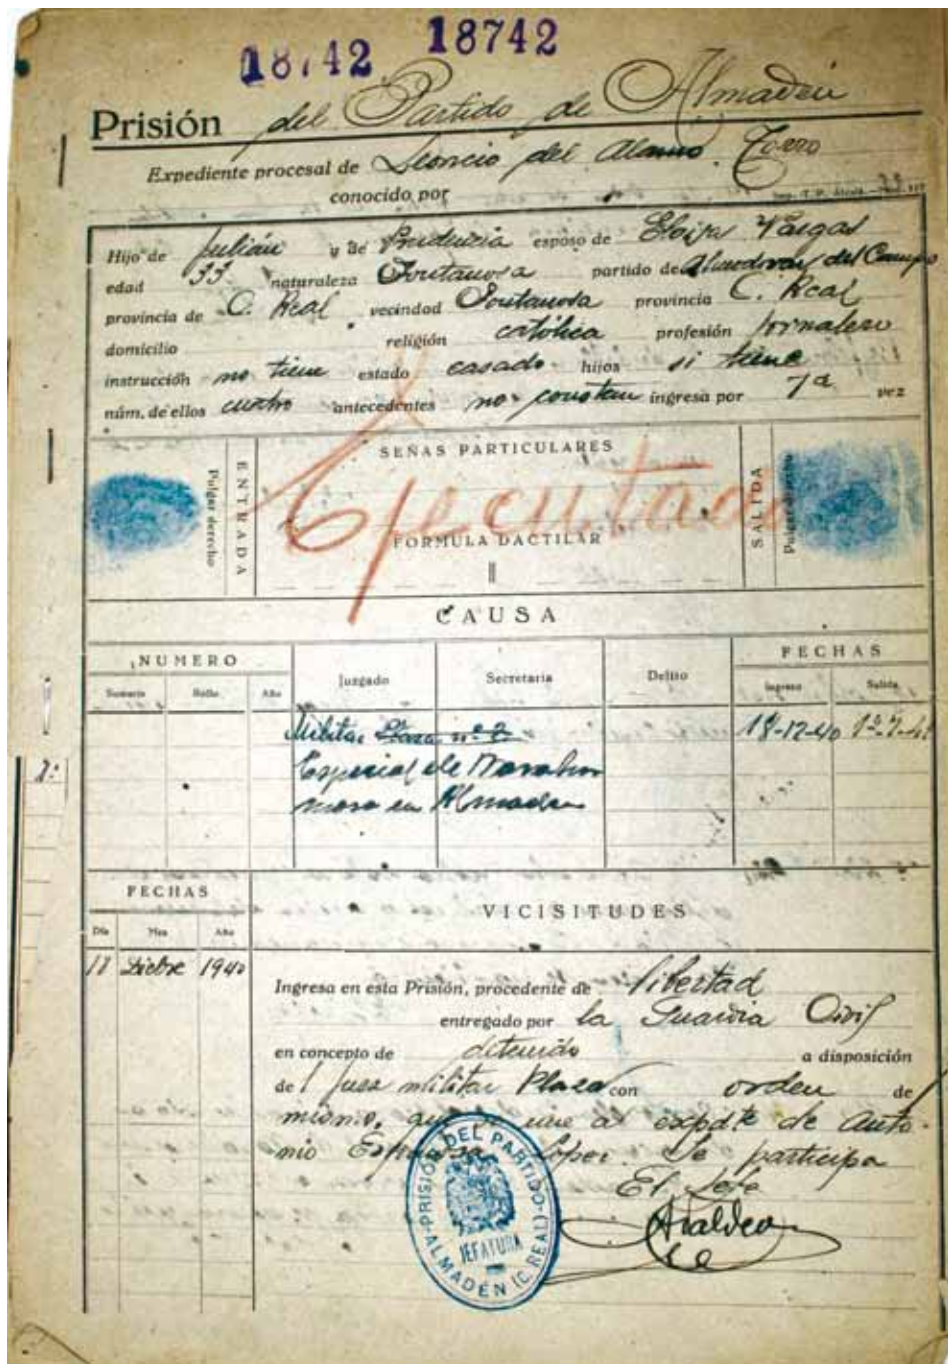 18742 18742
Prisión del Partido de Almadén
Expediente procesal de Leoncio del Alamo Torro
conocido por
Hijo de Julián y de Prudencia esposo de Eloisa Vargas
edad 33 naturaleza Fontanosa partido de Almodovar del Campo
provincia de C. Real vecindad Fontanosa provincia C. Real
domicilio religión católica profesión jornalero
instrucción no tiene estado casado hijos si tiene
núm. de ellos cuatro antecedentes no constan ingresa por 1ª vez
SEÑAS PARTICULARES
ENTRADA
Pulgar derecho
Ejecutado
SALIDA
Pulgar derecho
FORMULA DACTILAR
CAUSA
NUMERO Juzgado Secretaria Delito FECHAS
Sumario Rollo Año Ingreso Salida
Militar Plaza nº 2 18-12-40
Especial de
en Almaden
FECHAS
Día Mes Año VICISITUDES
18 Dicbre 1940
Ingresa en esta Prisión, procedente de libertad
entregado por la Guardia Civil
en concepto de detenido a disposición
del Juez militar Plaza con orden de
mismo, que se une a expdte de Anto-
nio Lopez. Se participa
El Jefe
PRISIÓN DEL PARTIDO
JEFATURA
ALMADÉN (C. REAL)